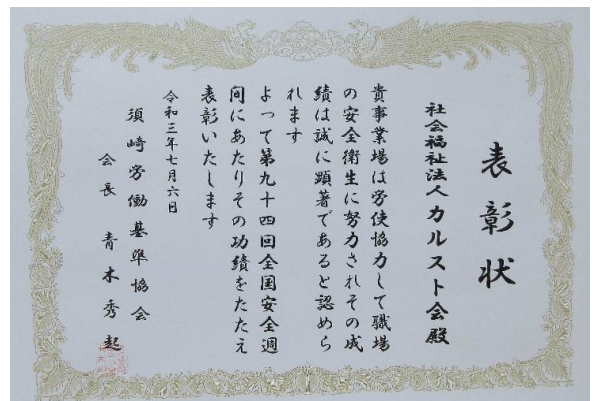 表彰状
社会福祉法人カルスト会殿
貴事業場は労使協力して職場
の安全衛生に努力されその成
績は誠に顕著であると認めら
れます
よって第九十四回全国安全週
間にあたりその功績をたたえ
表彰いたします
令和三年七月六日
須崎労働基準協会
会長 青木秀起